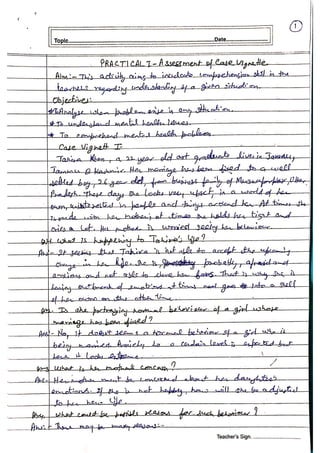 1
Topic
Date
PRACTICAL I - Assessment of Case Vignette
Aim:- This activity aims to inculcate comprehension skill in the
learners regarding understanding of a given situation.
Objectives:
* To Analyse when problem arise in any situation.
* To understand mental health issues.
* To comprehend mental health problem.
Case Vignette I
Tahira Khan, a 22 year old art graduate lives in Jammu,
Jammu & Kashmir. Her marriage has been fixed to a well
settled boy, 26 year old, from business family of
Pradesh. These days she looks very upset, in a world of her
own, in people and things around her. At times she
is rude with her mother; at times she holds her tight and
cries a lot. Her mother is worried seeing her behaviour.
What is happening to Tahira's life?
Ans:- It seems that Tahira is not able to accept the upcoming
change in her life. She is probably, afraid and
anxious and not able to share her fears. That is why she is
having outburst of emotions at times and goes into a shell
of her own on the other time.
Is she portraying normal behaviour of a girl whose
marriage has been fixed?
Ans:- No, it doesn't seem a normal behaviour of a girl who is
being married. Anxiety to a certain level is expected but
here it looks extreme.
What is her mother's concern?
Ans:- Her mother must be concerned about her daughter's
emotions. If she is not happy, how will she be adjusted
to her new life.
What could be possible reasons for such behaviour?
Ans:- There may be many reasons:-
Teacher's Sign